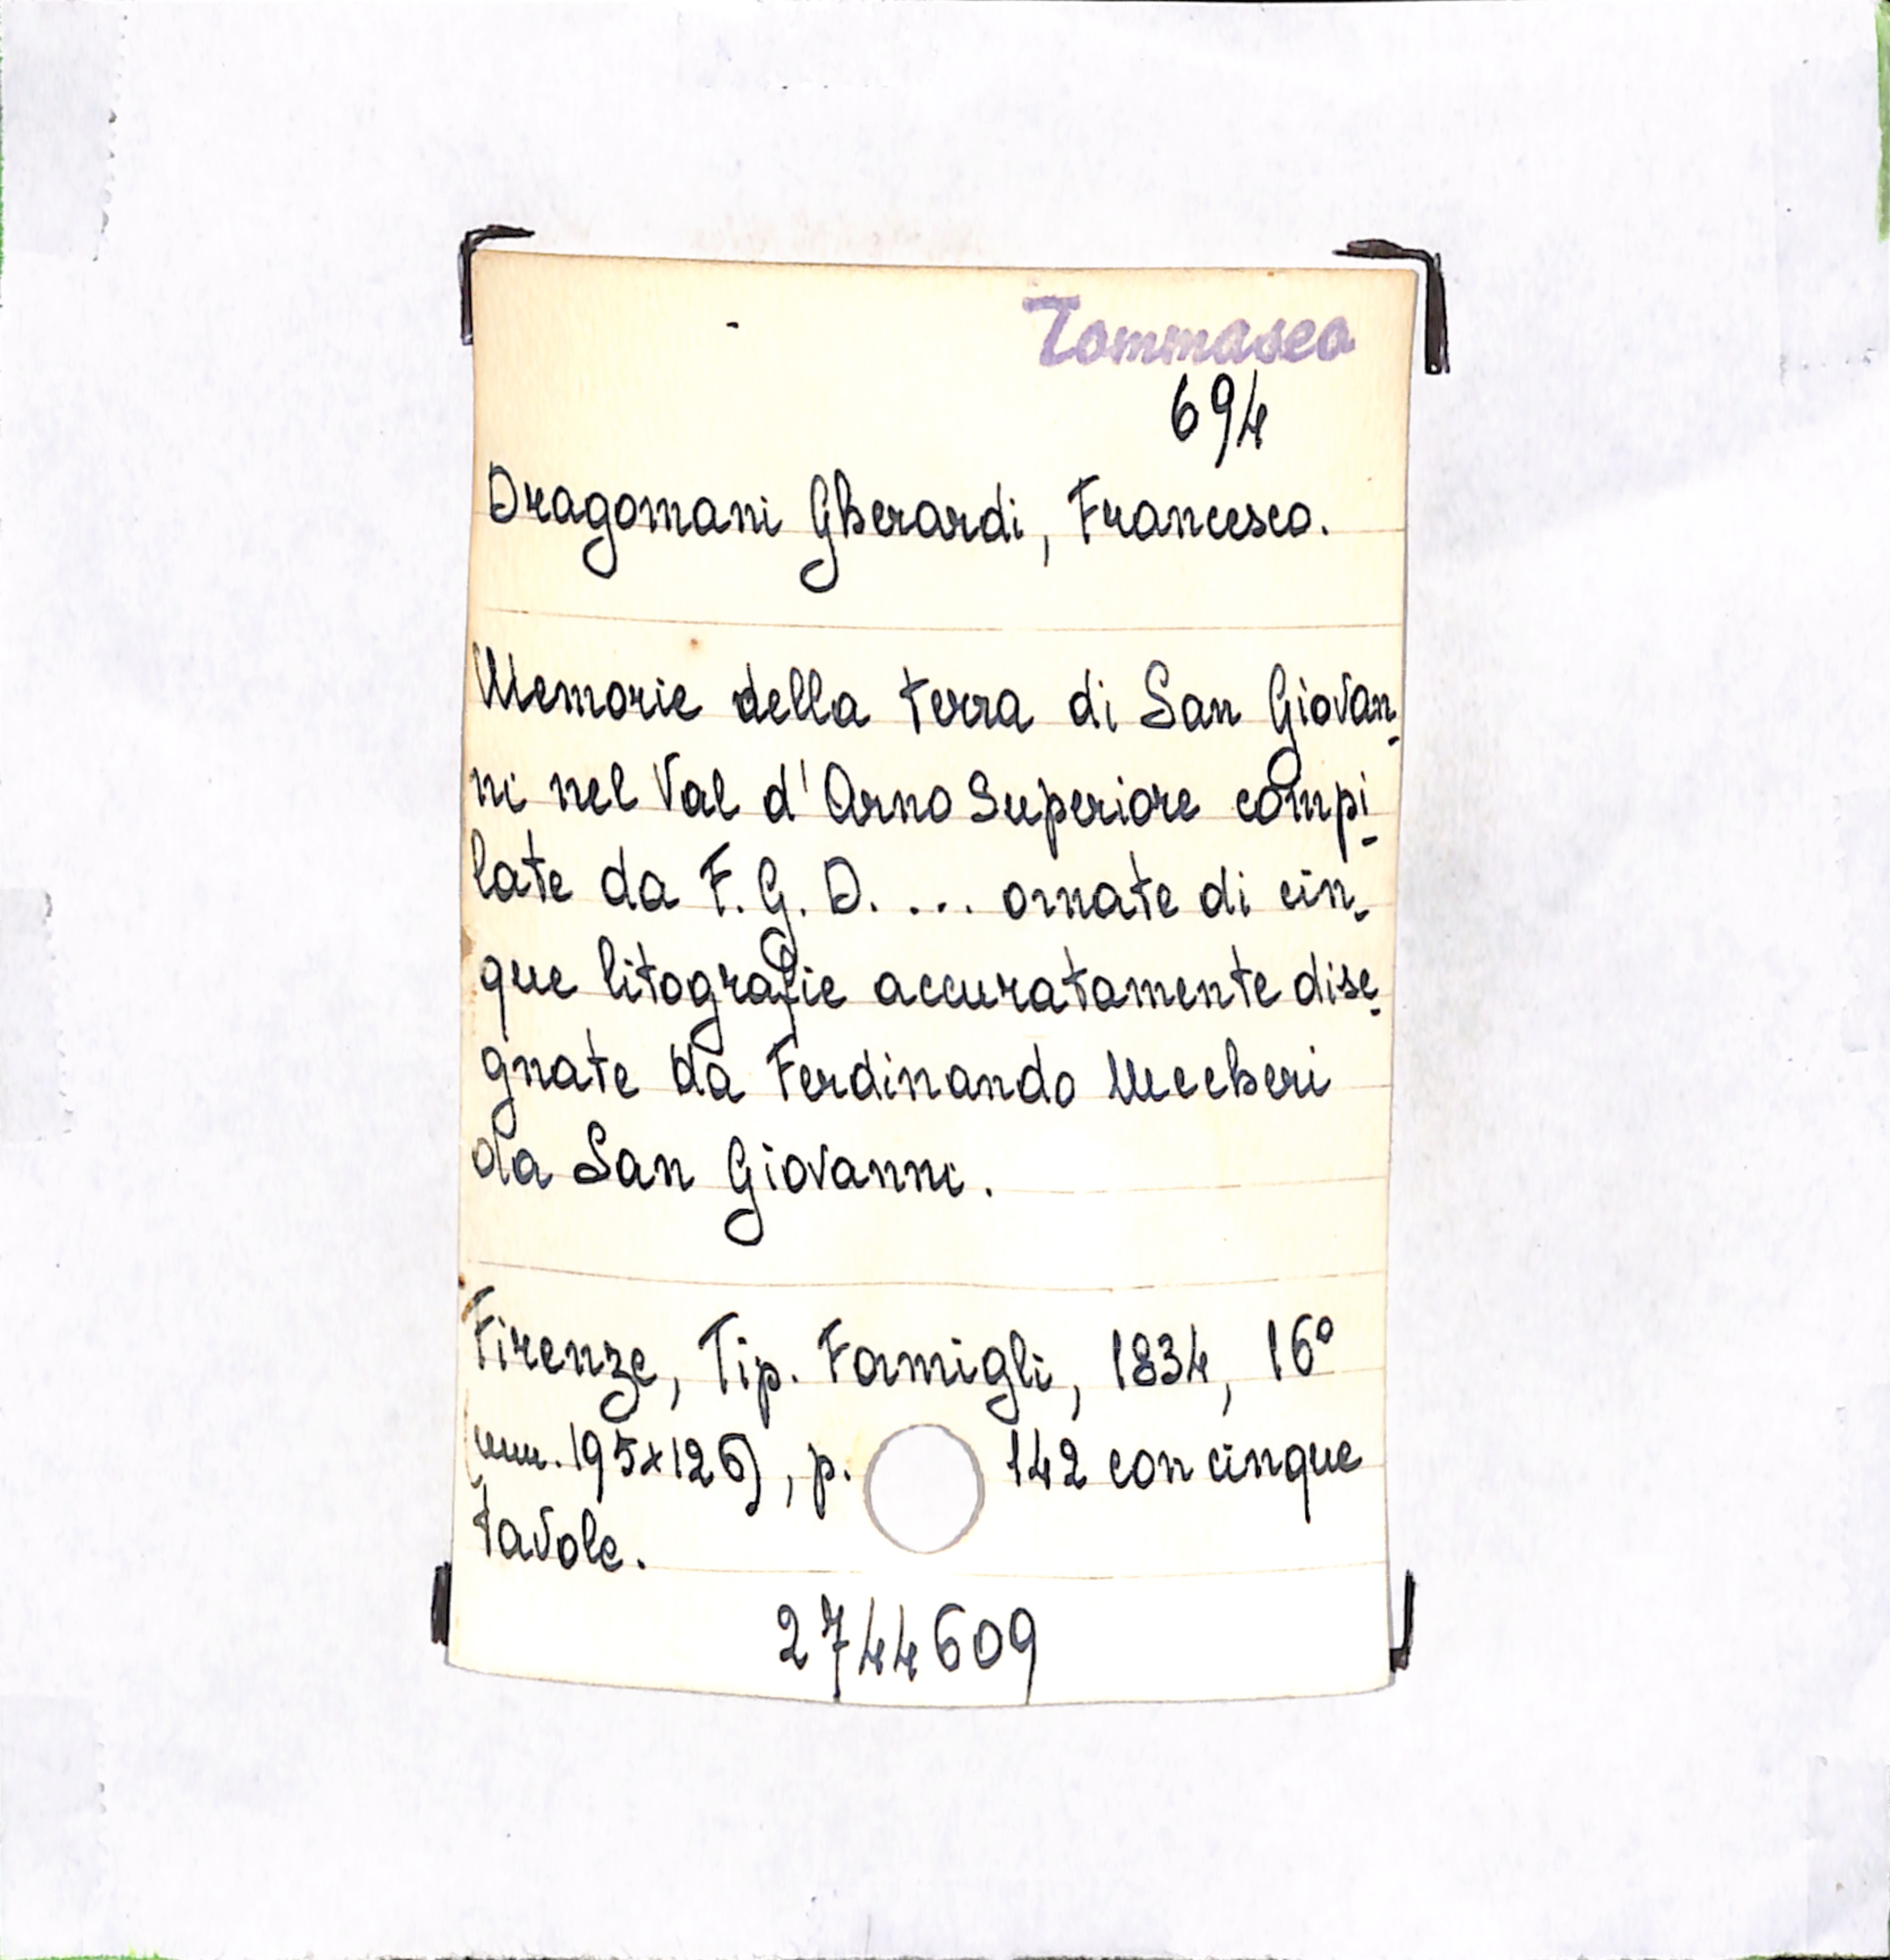 Tommaseo
694
Dragomani Gherardi, Francesco.
Memorie della terra di San Giovan-
ni nel Val d'Arno Superiore compi-
late da F. G. D. ... ornate di cin-
que litografie accuratamente dise-
gnate da Ferdinando Meccheri
da San Giovanni.
Firenze, Tip. Formigli, 1834, 16°
(mm. 195x126), p. 142 con cinque
tavole.
2744609